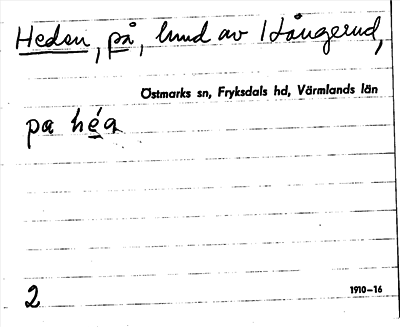 Heden, på, hmd av Hångerud,
Östmarks sn, Fryksdals hd, Värmlands län
pa héa
2
1910–16